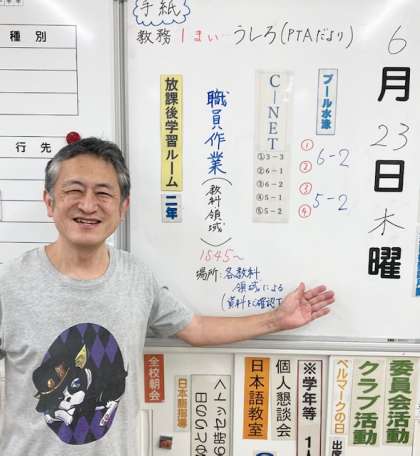 手紙
教務 1まい…うしろ(PTAだより)
種別
行先
6
月
23
日
木
曜
プール水泳
① 6-2
②
③ 5-2
④
C-NET
①3-3
②6-1
③6-2
④5-1
⑤5-2
職員作業
(教科領域)
1545~
場所:各教科
領域による
(資料をご確認下
放課後学習ルーム 二年
全校朝会
日本語指導
日本語教室
個人懇談会
※学年等
ベルマークの日
クラブ活動
委員会活動